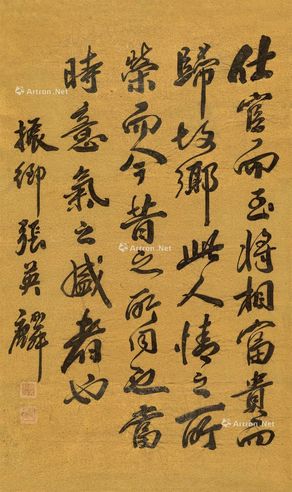 仕宦而至將相富貴而
歸故鄉此人情之所
榮而今昔之所同也當
時意氣之盛者也
振卿張英麟
Artron.Net
Artron.Net
Artron.Net
Artron.Net